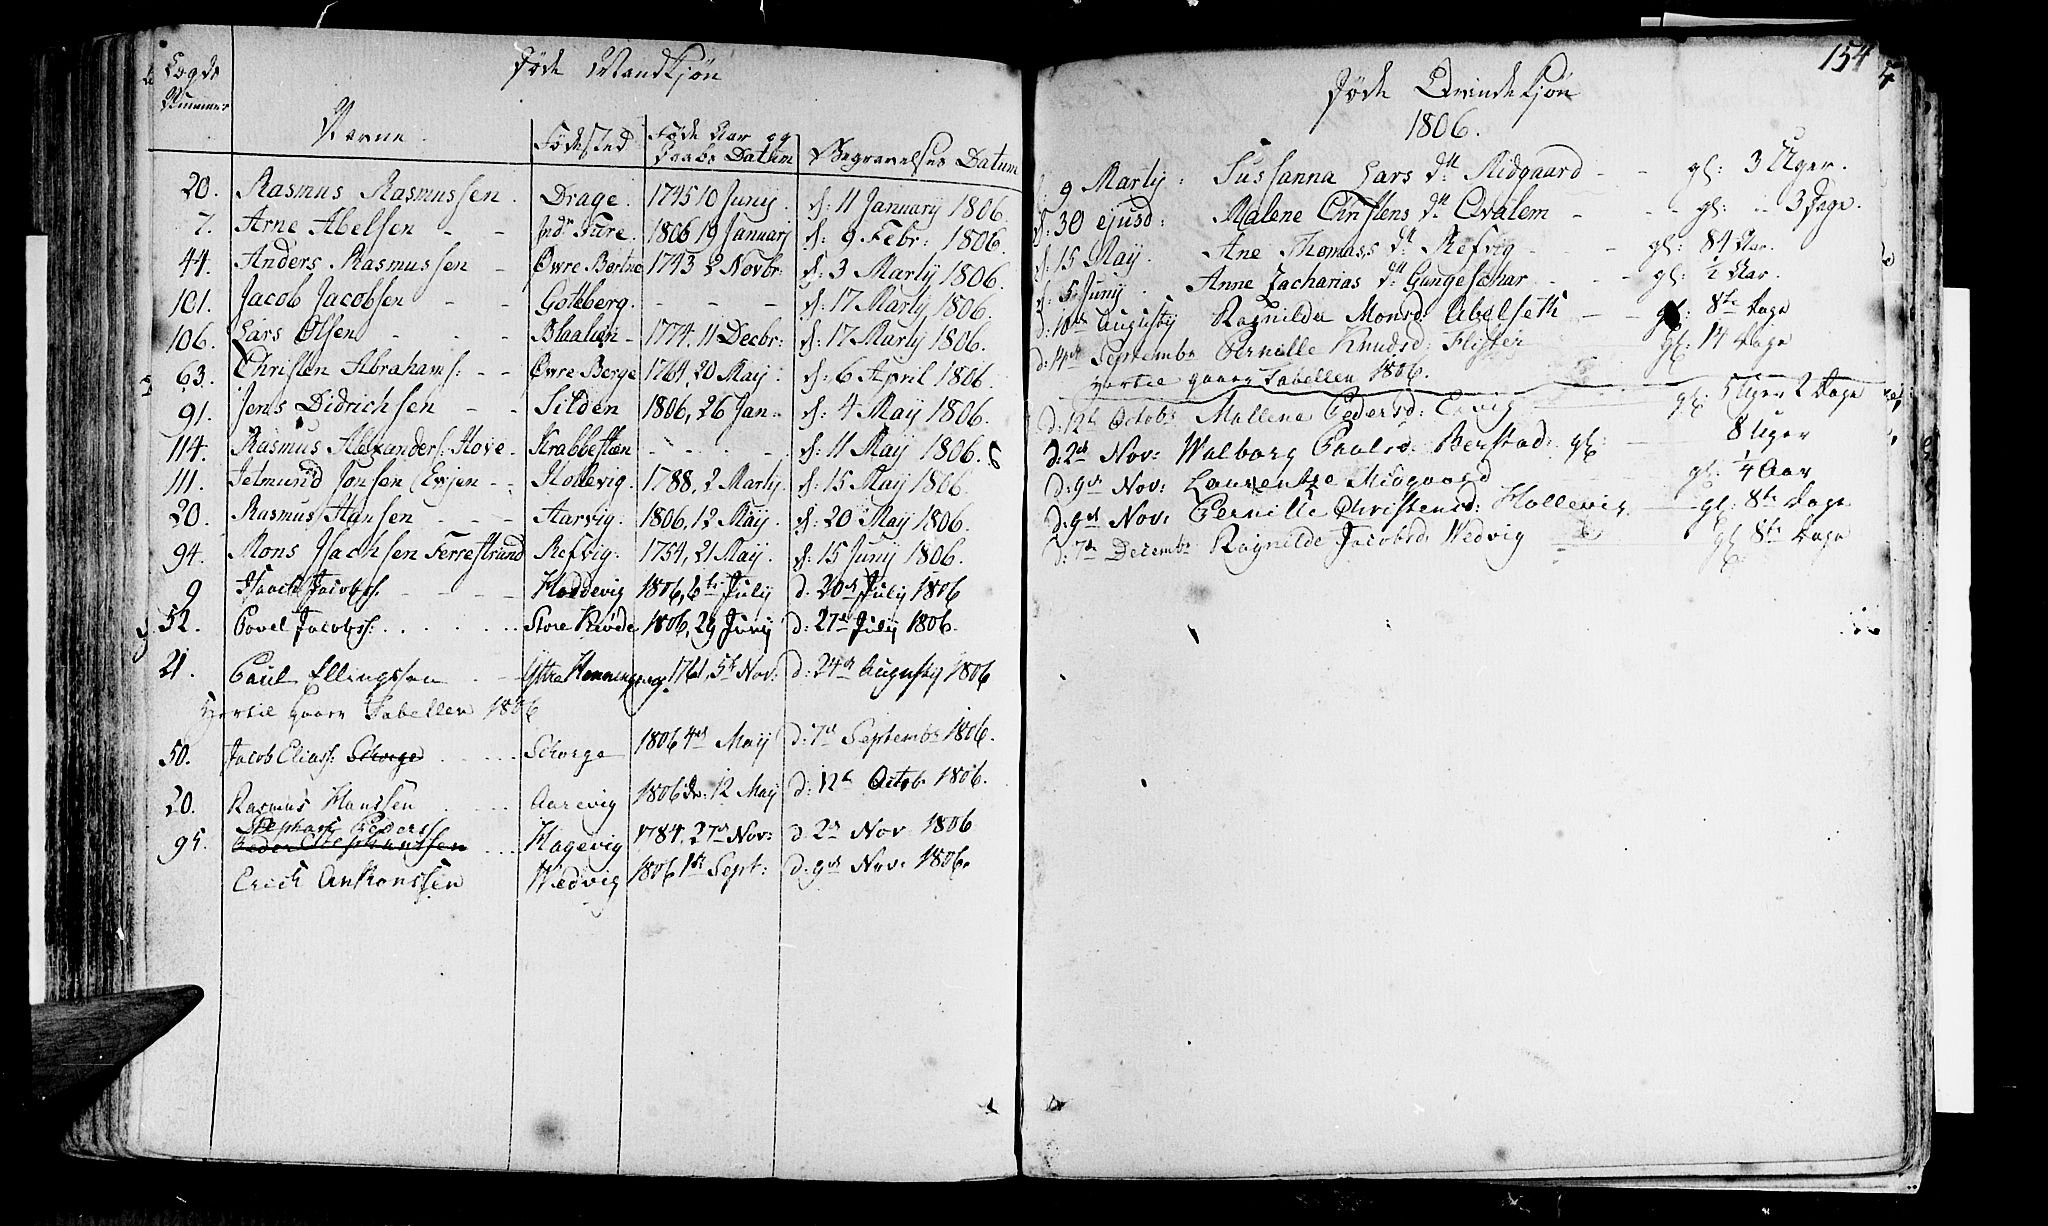 Døde Mandkjøn
Lægds Nummer
Navne
Fødested
Føde Aar og Daabs Datum
Begravelses Datum
20. Rasmus Rasmussen. Drage. 1745 10 Junij. d: 11 Januarij 1806.
7. Arne Abelsen - - Indr Fure. 1806 19 Januarj d: 9 Febr: 1806.
44. Anders Rasmussen - Øvre Bortne 1743 2 Novbr: d: 3 Martij 1806.
101. Jacob Jacobsen - - Gotteberg. - - - d: 17 Martij 1806.
106. Lars Olsen - - - Blaalien - 1774. 11 Decbr: d: 17 Martij 1806.
63. Christen Abrahams: - - Øvre Berge 1764, 20 Maij. d: 6 April 1806.
91. Jens Didrichsen - - Silden 1806, 26 Jan - d: 4 Maij 1806.
114. Rasmus Alexanders: Hove - Krabbestæn - - - d: 11 Maij 1806.
111. Jetmund Jonsen Ervjen - - Hollevig. 1788, 2 Martij. d: 15 Maij 1806.
20. Rasmus Hansen - - - Aarvig. 1806, 12 Maij. d: 20 Maij 1806.
94. Mons Isachsen Ferrestrand Refvig: 1754, 21 Maij. d: 15 Junij 1806.
9 Isaach Jacobs. - - - - Hoddevig 1806, 6te Julij d: 20de Julij 1806
52. Povel Jacobss: . . . . . . Store Krøde 1806, 29 Junij d: 27de Julij 1806.
21. Paul Ellingssen - - Yttre Henningsvog. 1761, 5te Nov: d: 24de Augustij 1806
Hertil gaaer Tabellen 1806
50. Jacob Eliass: Schorge . . . . . . Schorge 1806 4de Maij d: 7de Septembr 1806.
20. Rasmus Hanssen . . . . Aarevig 1806 d: 12 May d: 12te Octob 1806.
Stephan Pederss
95. Peder Stephanssen . . . Hagevig 1784. 27de Nov: d: 2de Nov 1806
Erich Anthonssen Wedvig 1806 1ste Sept: d: 9de Nov: 1806.
154
Døde Qvindekjøn
1806.
d: 9 Martij: Sussanna Lars dtt Midgaard - - gl: 3 Uger.
d: 30 ejusd: Malene Christens dtt Qvalem - - - gl: .. 3 Dage.
d: 15 Maij. Ane Thomass dtt Refvig - - - gl: 84 Aar.
d: 5 Junij. Anne Zacharias dtt Gangeschar - - - gl: ½ Aar.
d: 10de Augustij Ragnilda Monsd: Abelseth - - gl: 8te Dage
d: 14de Septembr Pernille Knudsd: Flister gl: 14 Dage
Hertil gaaer Tabellen 1806.
d: 12te Octobr Mallene Pedersd: Ervig gl: 5 Uger 2 Dage
d: 2de Nov: Walborg Paulsd: Berstad: gl: - 8 Uger
d: 9de Nov: Laurentze Midgaard gl: ¼ Aar
d: 9de Nov: Pernille Christensd: Hollevig gl: 8te Dage
d: 7de Decembr Ragnilde Jacobsd: Wedvig gl: 8te Dage